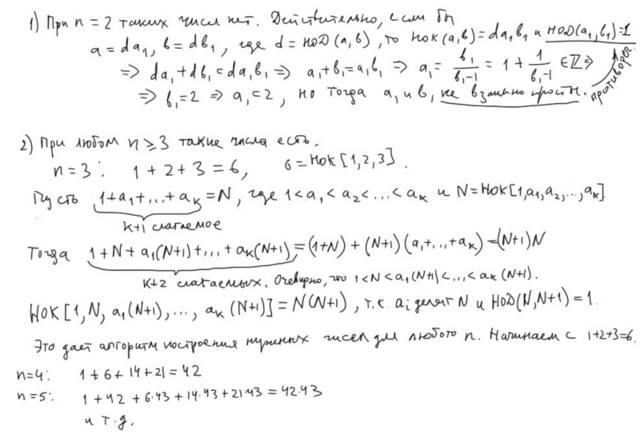 1) При n=2 таких чисел нет. Действительно, если бы
a = da₁, b = db₁, где d = НОД(a,b), то НОК(a,b) = da₁b₁ и НОД(a₁,b₁)=1
⇒ da₁+db₁ = da₁b₁ ⇒ a₁+b₁ = a₁b₁ ⇒ a₁ = b₁/(b₁-1) = 1 + 1/(b₁-1) ∈ ℤ ⇒
⇒ b₁=2 ⇒ a₁=2, но тогда a₁ и b₁ не взаимно просты. противореч.
2) При любом n ≥ 3 такие числа есть.
n=3: 1+2+3=6, 6=НОК[1,2,3].
Пусть 1+a₁+...+aₖ = N, где 1<a₁<a₂<...<aₖ и N=НОК[1,a₁,a₂,...,aₖ]
k+1 слагаемое
Тогда 1+N+a₁(N+1)+...+aₖ(N+1) = (1+N)+(N+1)(a₁+...+aₖ) = (N+1)N
k+2 слагаемых. Очевидно, что 1<N<a₁(N+1)<...<aₖ(N+1).
НОК[1,N,a₁(N+1),...,aₖ(N+1)] = N(N+1), т.к. aᵢ делят N и НОД(N,N+1)=1.
Это дает алгоритм построения нужных чисел для любого n. Начинаем с 1+2+3=6.
n=4: 1+6+14+21=42
n=5: 1+42+6·43+14·43+21·43=42·43
и т.д.